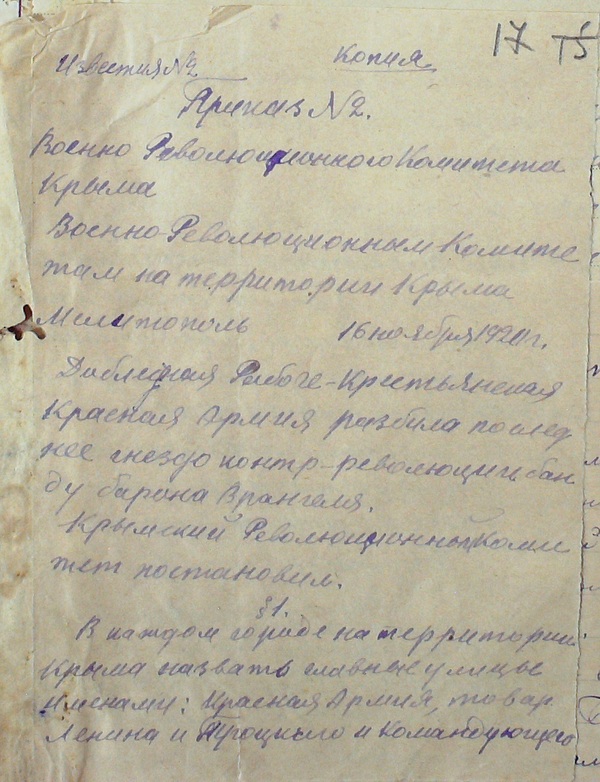 17 15
Известия №2 Копия
Приказ №2.
Военно Революционного Комитета
Крыма
Военно-Революционным Комите
там на территории Крыма
Мелитополь 16 ноября 1920 г.
Доблестная Рабоче-Крестьянская
Красная Армия разбила послед
нее гнездо контр-революции бан
ду барона Врангеля.
Крымский Революционный Коми
тет постановил.
§1.
В каждом городе на территории
Крыма назвать главные улицы
именами: Красная Армия, товар.
Ленина и Троцкого и Командующего